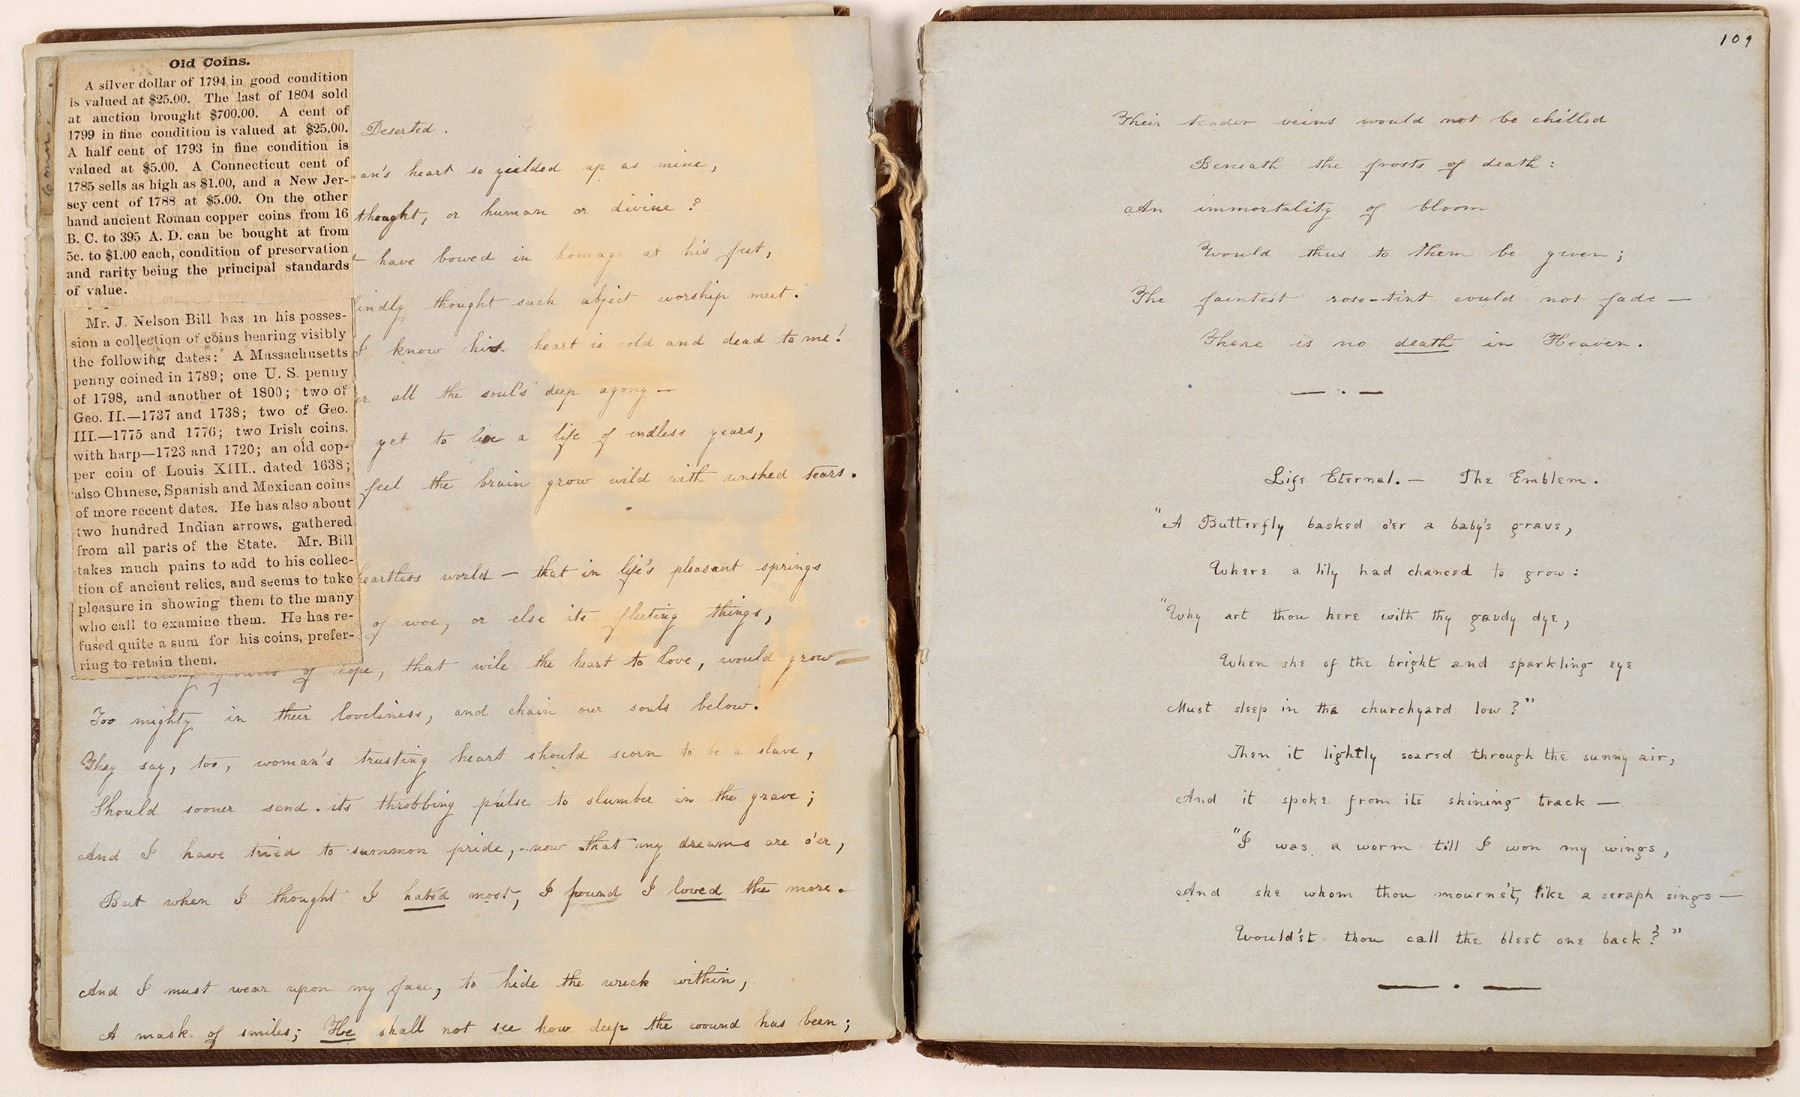 Old Coins.
A silver dollar of 1794 in good condition
is valued at $25.00. The last of 1804 sold
at auction brought $700.00. A cent of
1799 in fine condition is valued at $25.00.
A half cent of 1793 in fine condition is
valued at $5.00. A Connecticut cent of
1785 sells as high as $1.00, and a New Jer-
sey cent of 1788 at $5.00. On the other
hand ancient Roman copper coins from 16
B. C. to 395 A. D. can be bought at from
5c. to $1.00 each, condition of preservation
and rarity being the principal standards
of value.
Mr. J. Nelson Bill has in his posses-
sion a collection of coins bearing visibly
the following dates: A Massachusetts
penny coined in 1789; one U. S. penny
of 1798, and another of 1800; two of
Geo. II.—1737 and 1738; two of Geo.
III.—1775 and 1776; two Irish coins,
with harp—1723 and 1720; an old cop-
per coin of Louis XIII., dated 1638;
also Chinese, Spanish and Mexican coins
of more recent dates. He has also about
two hundred Indian arrows, gathered
from all parts of the State. Mr. Bill
takes much pains to add to his collec-
tion of ancient relics, and seems to take
pleasure in showing them to the many
who call to examine them. He has re-
fused quite a sum for his coins, prefer-
ring to retain them.
Deserted.
an's heart so yielded up as mine,
thought, or human or divine?
have bowed in homage at his feet,
indly thought such abject worship meet.
I know his heart is cold and dead to me!
er all the soul's deep agony —
yet to live a life of endless years,
feel the brain grow wild with unshed tears.
heartless world — that in life's pleasant springs
of woe, or else its fleeting things,
of hope, that wile the heart to love, would grow
Too mighty in their loveliness, and chain our souls below.
They say, too, woman's trusting heart should scorn to be a slave,
Should sooner send its throbbing pulse to slumber in the grave;
And I have tried to summon pride, now that my dreams are o'er,
But when I thought I hated most, I found I loved the more.
And I must wear upon my face, to hide the wreck within,
A mask of smiles; He shall not see how deep the wound has been;
109
Their tender veins would not be chilled
Beneath the frosts of death:
An immortality of bloom
Would thus to them be given;
The faintest rose-tint could not fade —
There is no death in Heaven.
Life Eternal. — The Emblem.
"A Butterfly basked o'er a baby's grave,
Where a lily had chanced to grow:
"Why art thou here with thy gaudy dye,
When she of the bright and sparkling eye
Must sleep in the churchyard low?"
Then it lightly soared through the sunny air,
And it spoke from its shining track —
"I was a worm till I won my wings,
And she whom thou mourn'st, like a seraph sings —
Would'st thou call the blest one back?"